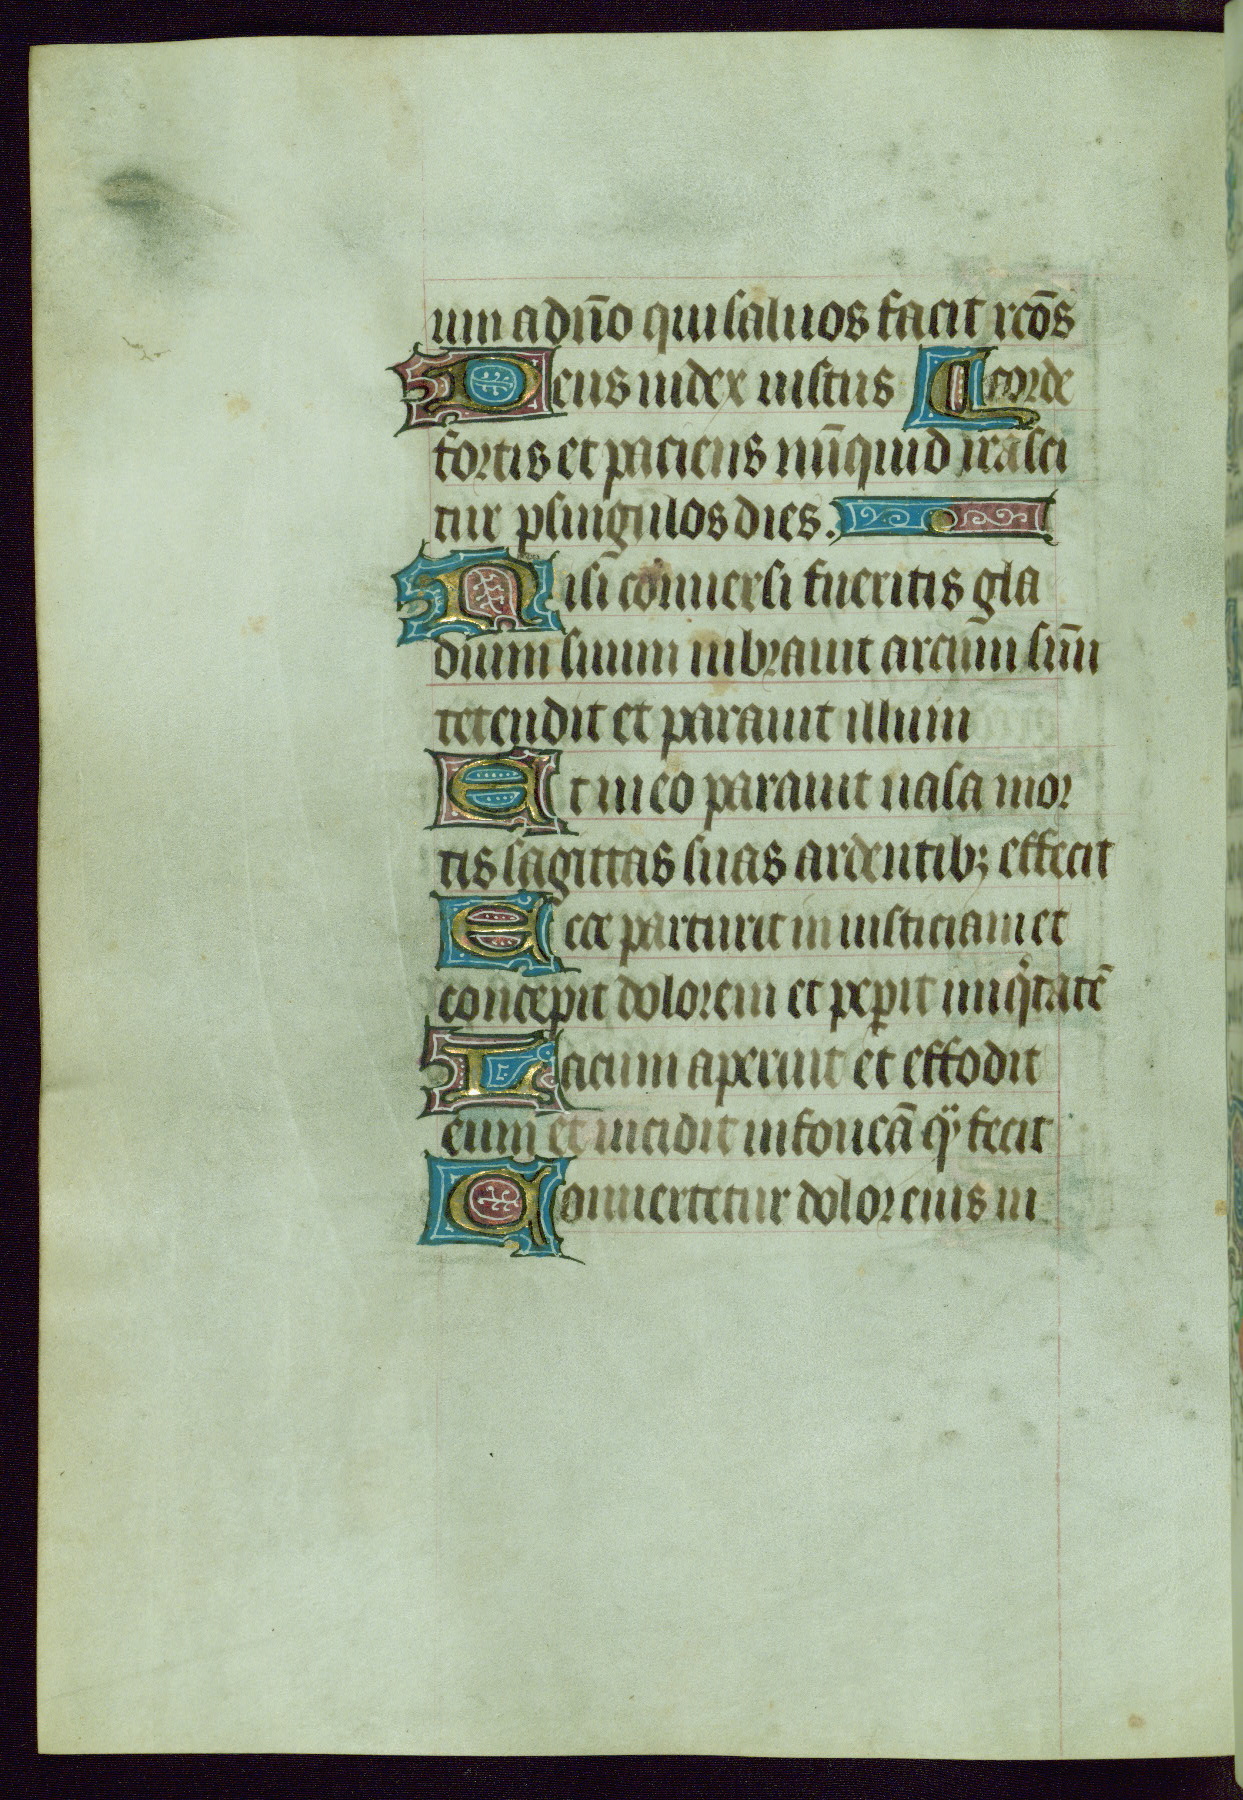 um a dño qui saluos facit rcõs
Deus iudex iustus corde
fortis et paciens nũquid irasci
tur psingulos dies.
Nisi conuersi fueritis gla
dium suum uibrauit arcum suũ
tetendit et parauit illum
Et in eo parauit uasa mor
tis sagittas suas ardentibꝫ effecit
Ecce parturit iniusticiam et
concepit dolorem et peperit iniqͥtatẽ
Lacum aperuit et effodit
eum et incidit in foueã qͣ fecit
Conuertetur dolor eius in